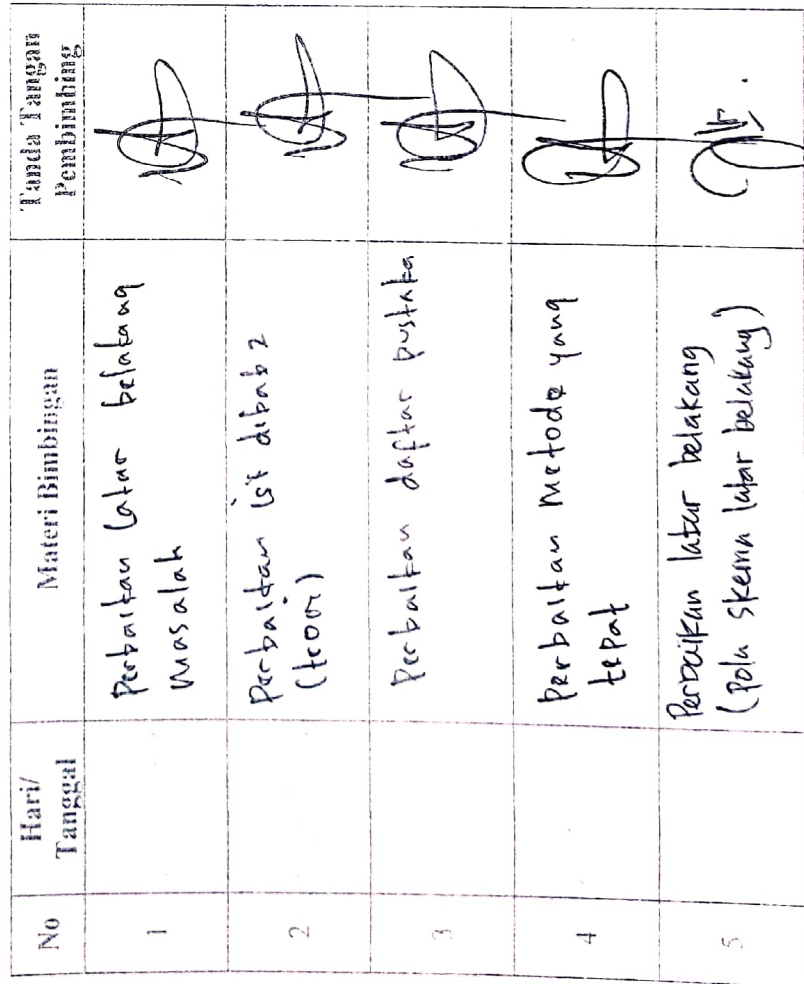 No
Hari/
Tanggal
Materi Bimbingan
Tanda Tangan
Pembimbing
1
Perbaikan latar belakang
masalah
2
Perbaikan isi dibab 2
(teori)
3
Perbaikan daftar pustaka
4
Perbaikan metode yang
tepat
5
Perbaikan latar belakang
(Pola skema latar belakang)